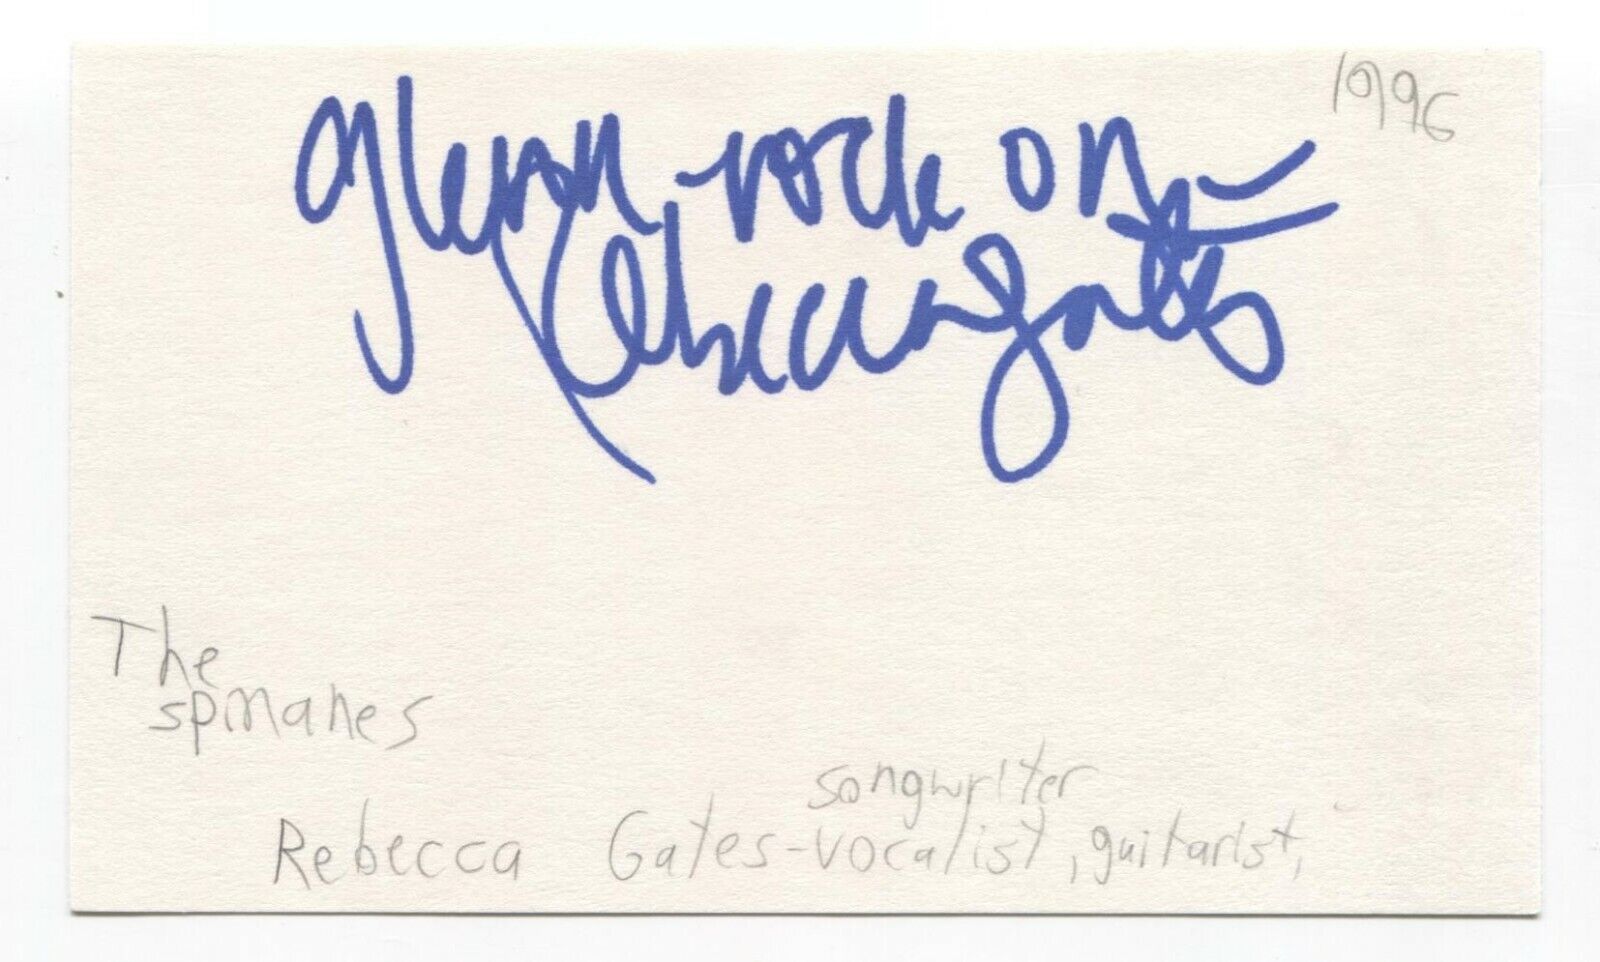 1996
glenn - rock on -
Rebecca Gates
The
spinanes
songwriter
Rebecca Gates - vocalist, guitarist,